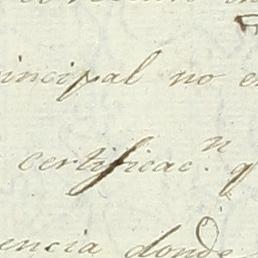 incipal no e
certificac.n q
encia donde